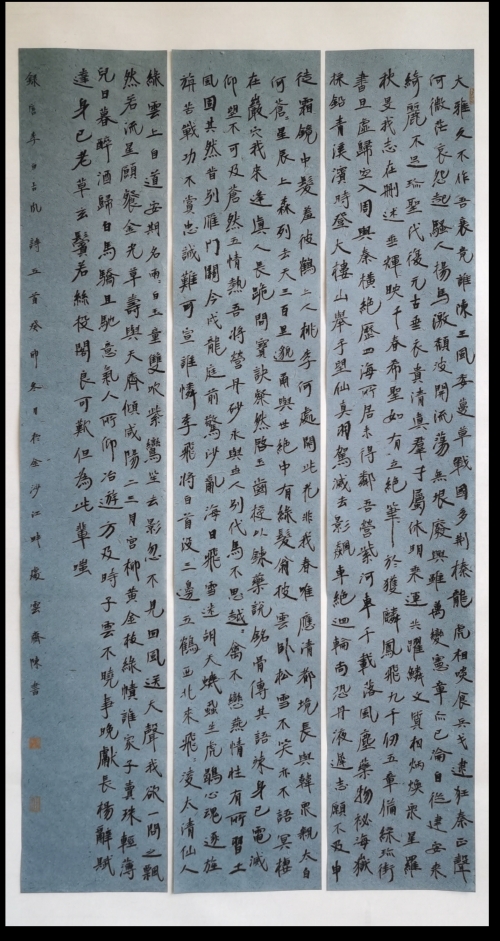 大雅久不作吾衰竟誰陳王風委蔓草戰國多荊榛龍虎相啖食兵戈逮狂秦正聲
何微茫哀怨起騷人揚馬激頹波開流蕩無垠廢興雖萬變憲章亦已淪自從建安來
綺麗不足珍聖代復元古垂衣貴清真群才屬休明乘運共躍鱗文質相炳煥眾星羅
秋旻我志在刪述垂輝映千春希聖如有立絕筆於獲麟鳳飛九千仞五章備綵珍銜
書且虛歸空入周與秦橫絕歷四海所居未得鄰吾營紫河車千載落風塵藥物秘海嶽
採鉛青溪濱時登大樓山舉手望仙真羽駕滅去影飆車絕回輪尚恐丹液遲志願不及申
徒霜鏡中髮羞彼鶴上人桃李何處開此花非我春唯應清都境長與韓眾親太白
何蒼々星辰上森列去天三百里邈爾與世絕中有綠髮翁披雲臥松雪不笑亦不語冥棲
在巖穴我來逢真人長跪問寶訣粲然啟玉齒授以鍊藥說銘骨傳其語竦身已電滅
仰望不可及蒼然五情熱吾將營丹砂永與世人別代馬不思越々禽不戀燕情性有所習土
風固其然昔別雁門關今戍龍庭前驚沙亂海日飛雪迷胡天蟣虱生虎鶡心魂逐旌
旃苦戰功不賞忠誠難可宣誰憐李飛將白首沒三邊五鶴西北來飛々凌太清仙人
綠雲上自道安期名兩々白玉童雙吹紫鸞笙去影忽不見回風送天聲我欲一問之飄
然若流星願餐金光草壽與天齊傾咸陽二三月宮柳黃金枝綠幘誰家子賣珠輕薄
兒日暮醉酒歸白馬驕且馳意氣人所仰冶遊方及時子雲不曉事晚獻長楊辭賦
達身已老草玄鬢若絲投閣良可歎但為此輩嗤
錄唐李白古風詩五首癸卯冬月於金沙江畔處雲齋陳書